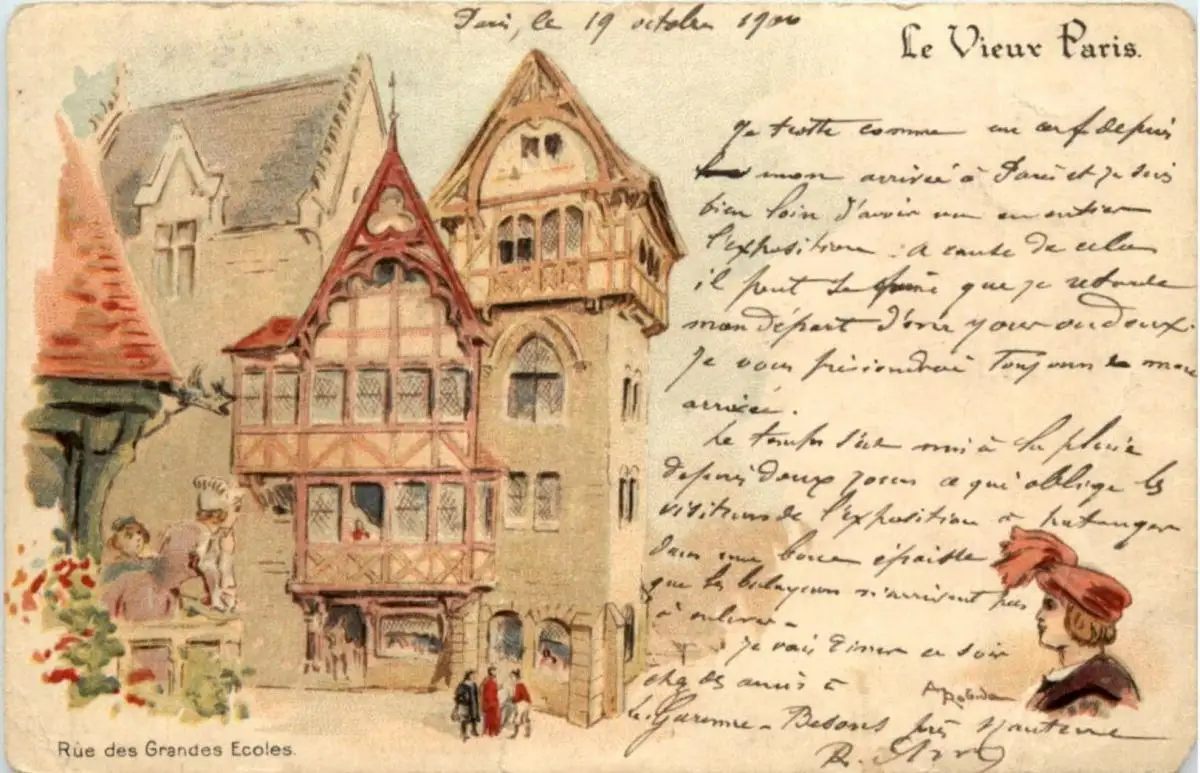 Paris, le 19 octobre 1900
Le Vieux Paris.
Je trotte comme un cerf depuis
mon arrivée à Paris et je suis
bien loin d'avoir vu en entier
l'exposition. à cause de cela
il peut se faire que je retarde
mon départ d'un jour ou deux.
Je vous préviendrai toujours de mon
arrivée.
Le temps s'est mis à la pluie
depuis deux jours ce qui oblige les
visiteurs de l'exposition à patauger
dans une boue épaisse
que les balayeurs n'arrivent pas
à enlever.
Je vais dîner ce soir
chez des amis à
A. Robida
la Garenne-Bezons près Nanterre
Rüe des Grandes Ecoles.